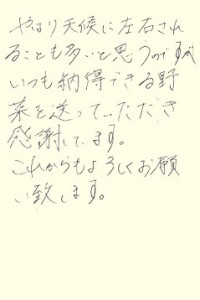 やはり天候に左右され
ることも多いと思うのですが
いつも納得できる野
菜を送っていただき
感謝しています。
これからもよろしくお願
い致します。